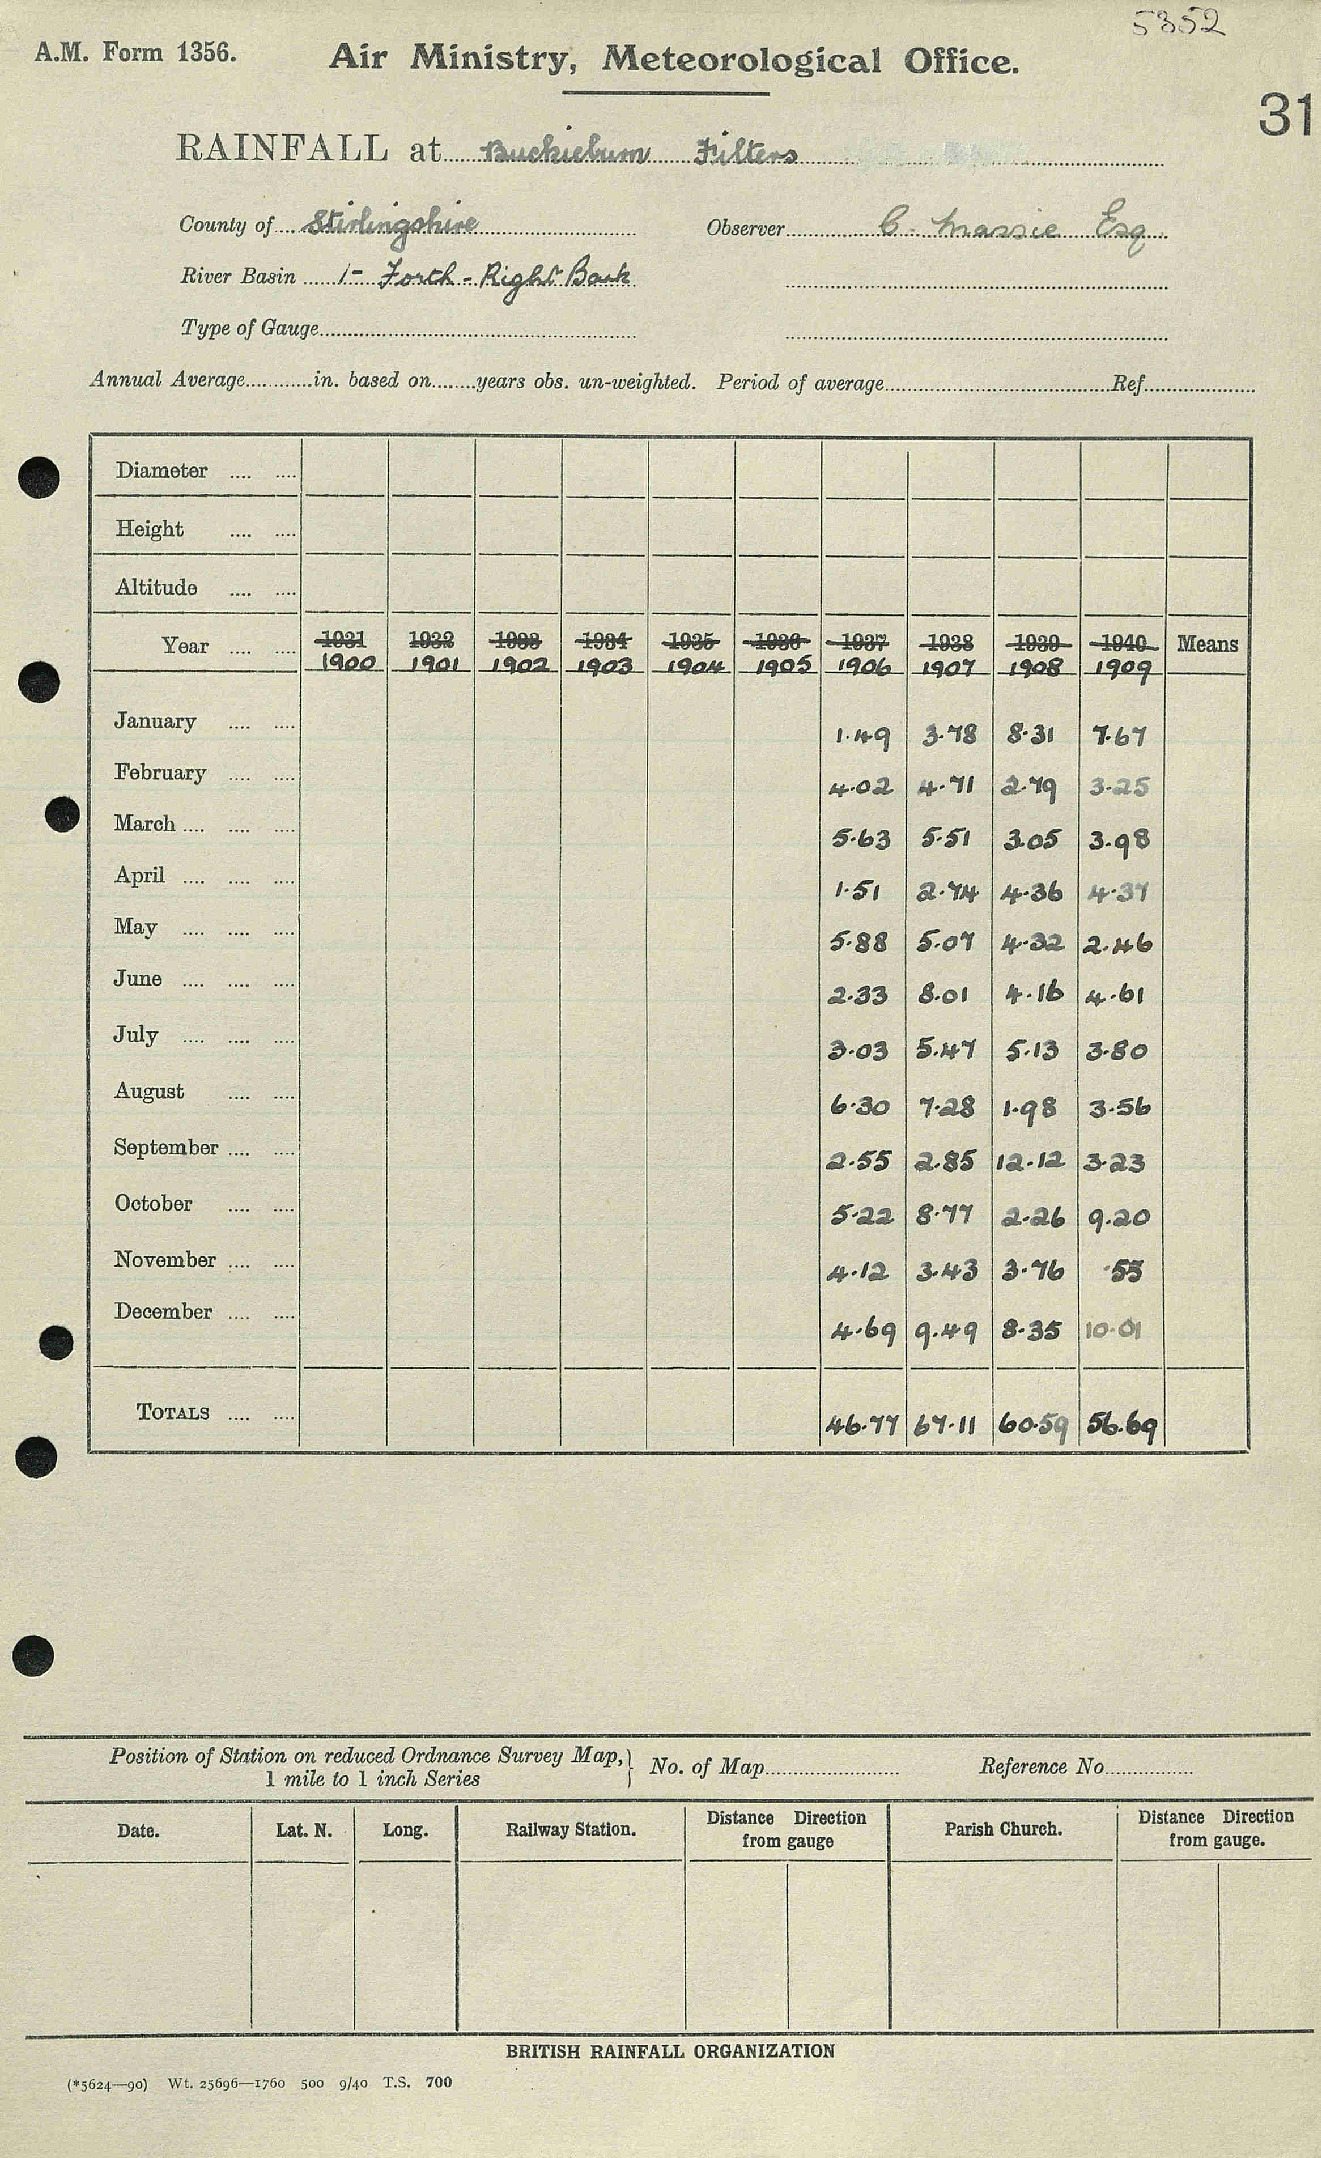 5352
A.M. Form 1356.
Air Ministry, Meteorological Office.
31
RAINFALL at Buckieburn Filters
County of Stirlingshire Observer C. Massie Esq
River Basin 1- Forth - Right Bank
Type of Gauge
Annual Average............in. based on........years obs. un-weighted. Period of average Ref
Diameter .... ....
Height .... ....
Altitude .... ....
Year .... .... 1931 1932 1933 1934 1935 1936 1937 1938 1939 1940 Means
1900 1901 1902 1903 1904 1905 1906 1907 1908 1909
January .... .... 1.49 3.78 8.31 7.67
February .... .... 4.02 4.71 2.79 3.25
March .... .... .... 5.63 5.51 3.05 3.98
April .... .... .... 1.51 2.74 4.36 4.37
May .... .... .... 5.88 5.07 4.32 2.46
June .... .... .... 2.33 8.01 4.16 4.61
July .... .... .... 3.03 5.47 5.13 3.80
August .... .... 6.30 7.28 1.98 3.56
September .... .... 2.55 2.85 12.12 3.23
October .... .... 5.22 8.77 2.26 9.20
November .... .... 4.12 3.43 3.76 .55
December .... .... 4.69 9.49 8.35 10.01
TOTALS .... .... 46.77 67.11 60.59 56.69
Position of Station on reduced Ordnance Survey Map,} No. of Map Reference No
1 mile to 1 inch Series
Date. Lat. N. Long. Railway Station. Distance Direction from gauge Parish Church. Distance Direction from gauge.
BRITISH RAINFALL ORGANIZATION
(*5624—90) Wt. 25696—1760 500 9/40 T.S. 700